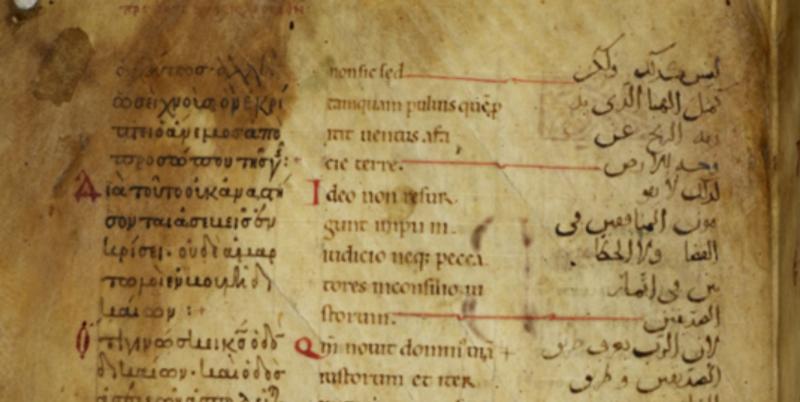 ὡσεὶ χνοῦς ὃν ἐκρί
πτει ὁ ἄνεμος ἀπὸ
προσώπου τῆς γῆς:
Διὰ τοῦτο οὐκ ἀναστή
σονται ἀσεβεῖς ἐν
κρίσει. οὐδὲ ἁμαρ
τωλοὶ ἐν βουλῇ δι
καίων:
Ὅτι γινώσκει κς ὁδὸν
δικαίων. καὶ ὁδὸς
non sic sed
tamquam puluis que p
icit uentus a fa
cie terre.
Ideo non resur
gunt impii in
iudicio neq; pecca
tores in consilio iu
storum.
Qm nouit dominus uia
iustorum et iter
ليس كذلك ولكن
كمثل الهبا الذى يذ
ريه الريح عن
وجه الارض
لذلك لا يقو
مون المنافقين فى
القضا ولا الخطا
ين فى
الصديقين
لان الرب يعرف طريق
الصديقين وطريق